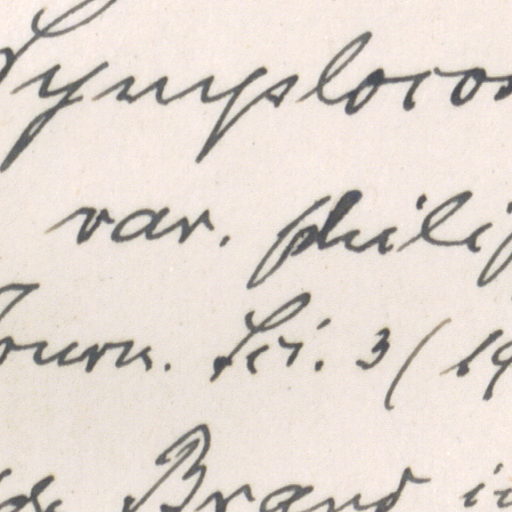 Symplocos
var. phili
Journ. Sci. 3 (19
Brand